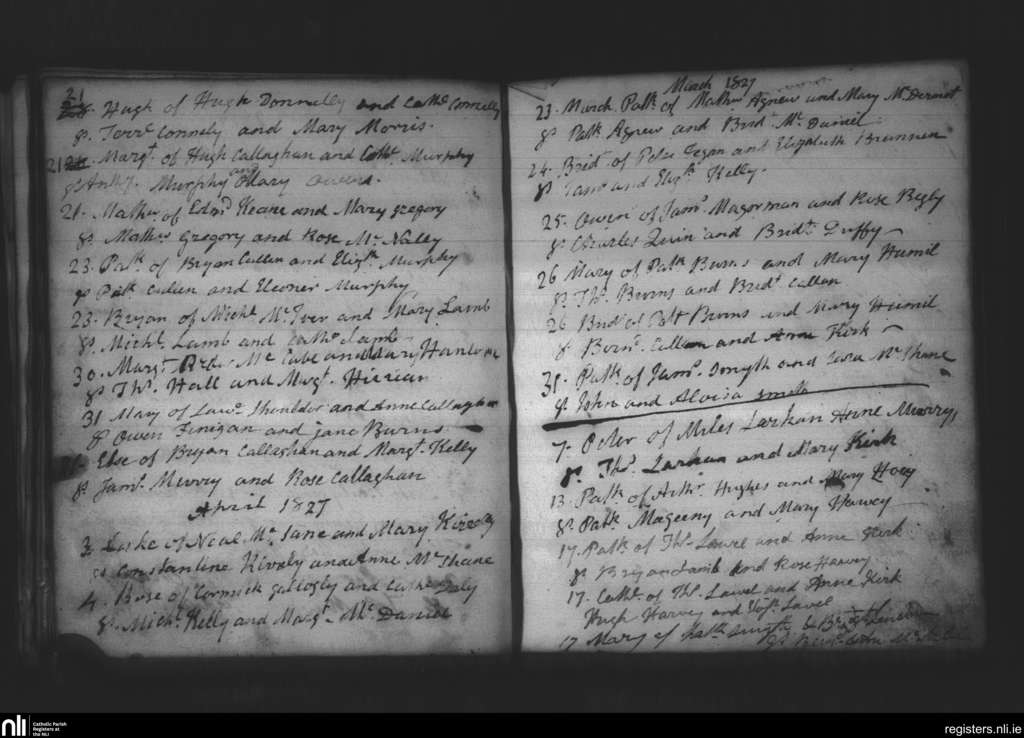 21
Hugh of Hugh Donnelly and Cathe. Connelly
gs. Terre. Connely and Mary Morris.
21 Margt. of Hugh Callaghan and Cathe. Murphy
Murphy and Mary Owens.
21. Mathw. of Edmd. Keane and Mary Gregory
gs. Mathw. Gregory and Rose Mc. Nally
23. Patk. of Bryan Cullen and Elizth. Murphy
gs Patk. Cullen and Eleoner Murphy
23. Bryan of Michl. Mc. Iver and Mary Lamb
gs. Michl. Lamb and Cathe. Lamb
30. Margt. Mc Cabe and Mary
gs Ths. Hall and Margt.
31 Mary of Lawe. and Anne Callaghan
gs Owen Finigan and Jane Burns
Else of Bryan Callaghan and Margt. Kelly
gs Jams. Murry and Rose Callaghan
April 1827
3 Luke of Neal Mc. Jane and Mary
gs Constantine and Anne Mc Shane
4. Rose of Cormick Gillogly and Cathe. Daly
gs. Michl. Kelly and Margt. Mc. Daniel
March 1827
23. March Patk. of Mathw Agnew and Mary Mc Dermot
gs Patk Agnew and Bridt. Mc. Daniel
24. Bridt. of Peter Fegan and Elizabeth Brannen
gs Jams and Elizth. Kelly.
25. Owen of Jams. Magorman and Rose
gs Charles Quin and Bridt. Duffy
26 Mary of Patk Burns and Mary Humil
gs. Ths. Burns and Bridt Cullen
26 Bridt of Patk Burns and Mary Humil
gs Bernd. Cullen and Anne Kirk
31. Patk of Jams. Smyth and Sara Mc Shane
gs John and Aloisa Smith
7. Peter of Miles Larkan Anne Murry,
gs. Ths. Larkan and Mary Kirk
13. Patk. of Arthr. Hughes and Mary Hoey
gs. Patk. Mageeny and Mary Harvey
17. Patk. of Ths. Lawel and Anne Kirk
gs Bryan Lamb and Rose Harvey
17. Cathe. of Ths. Lawel and Anne Kirk
Hugh Harvey and Lavel
17 Mary of Patk.
nli
Catholic Parish
Registers at
the NLI
registers.nli.ie